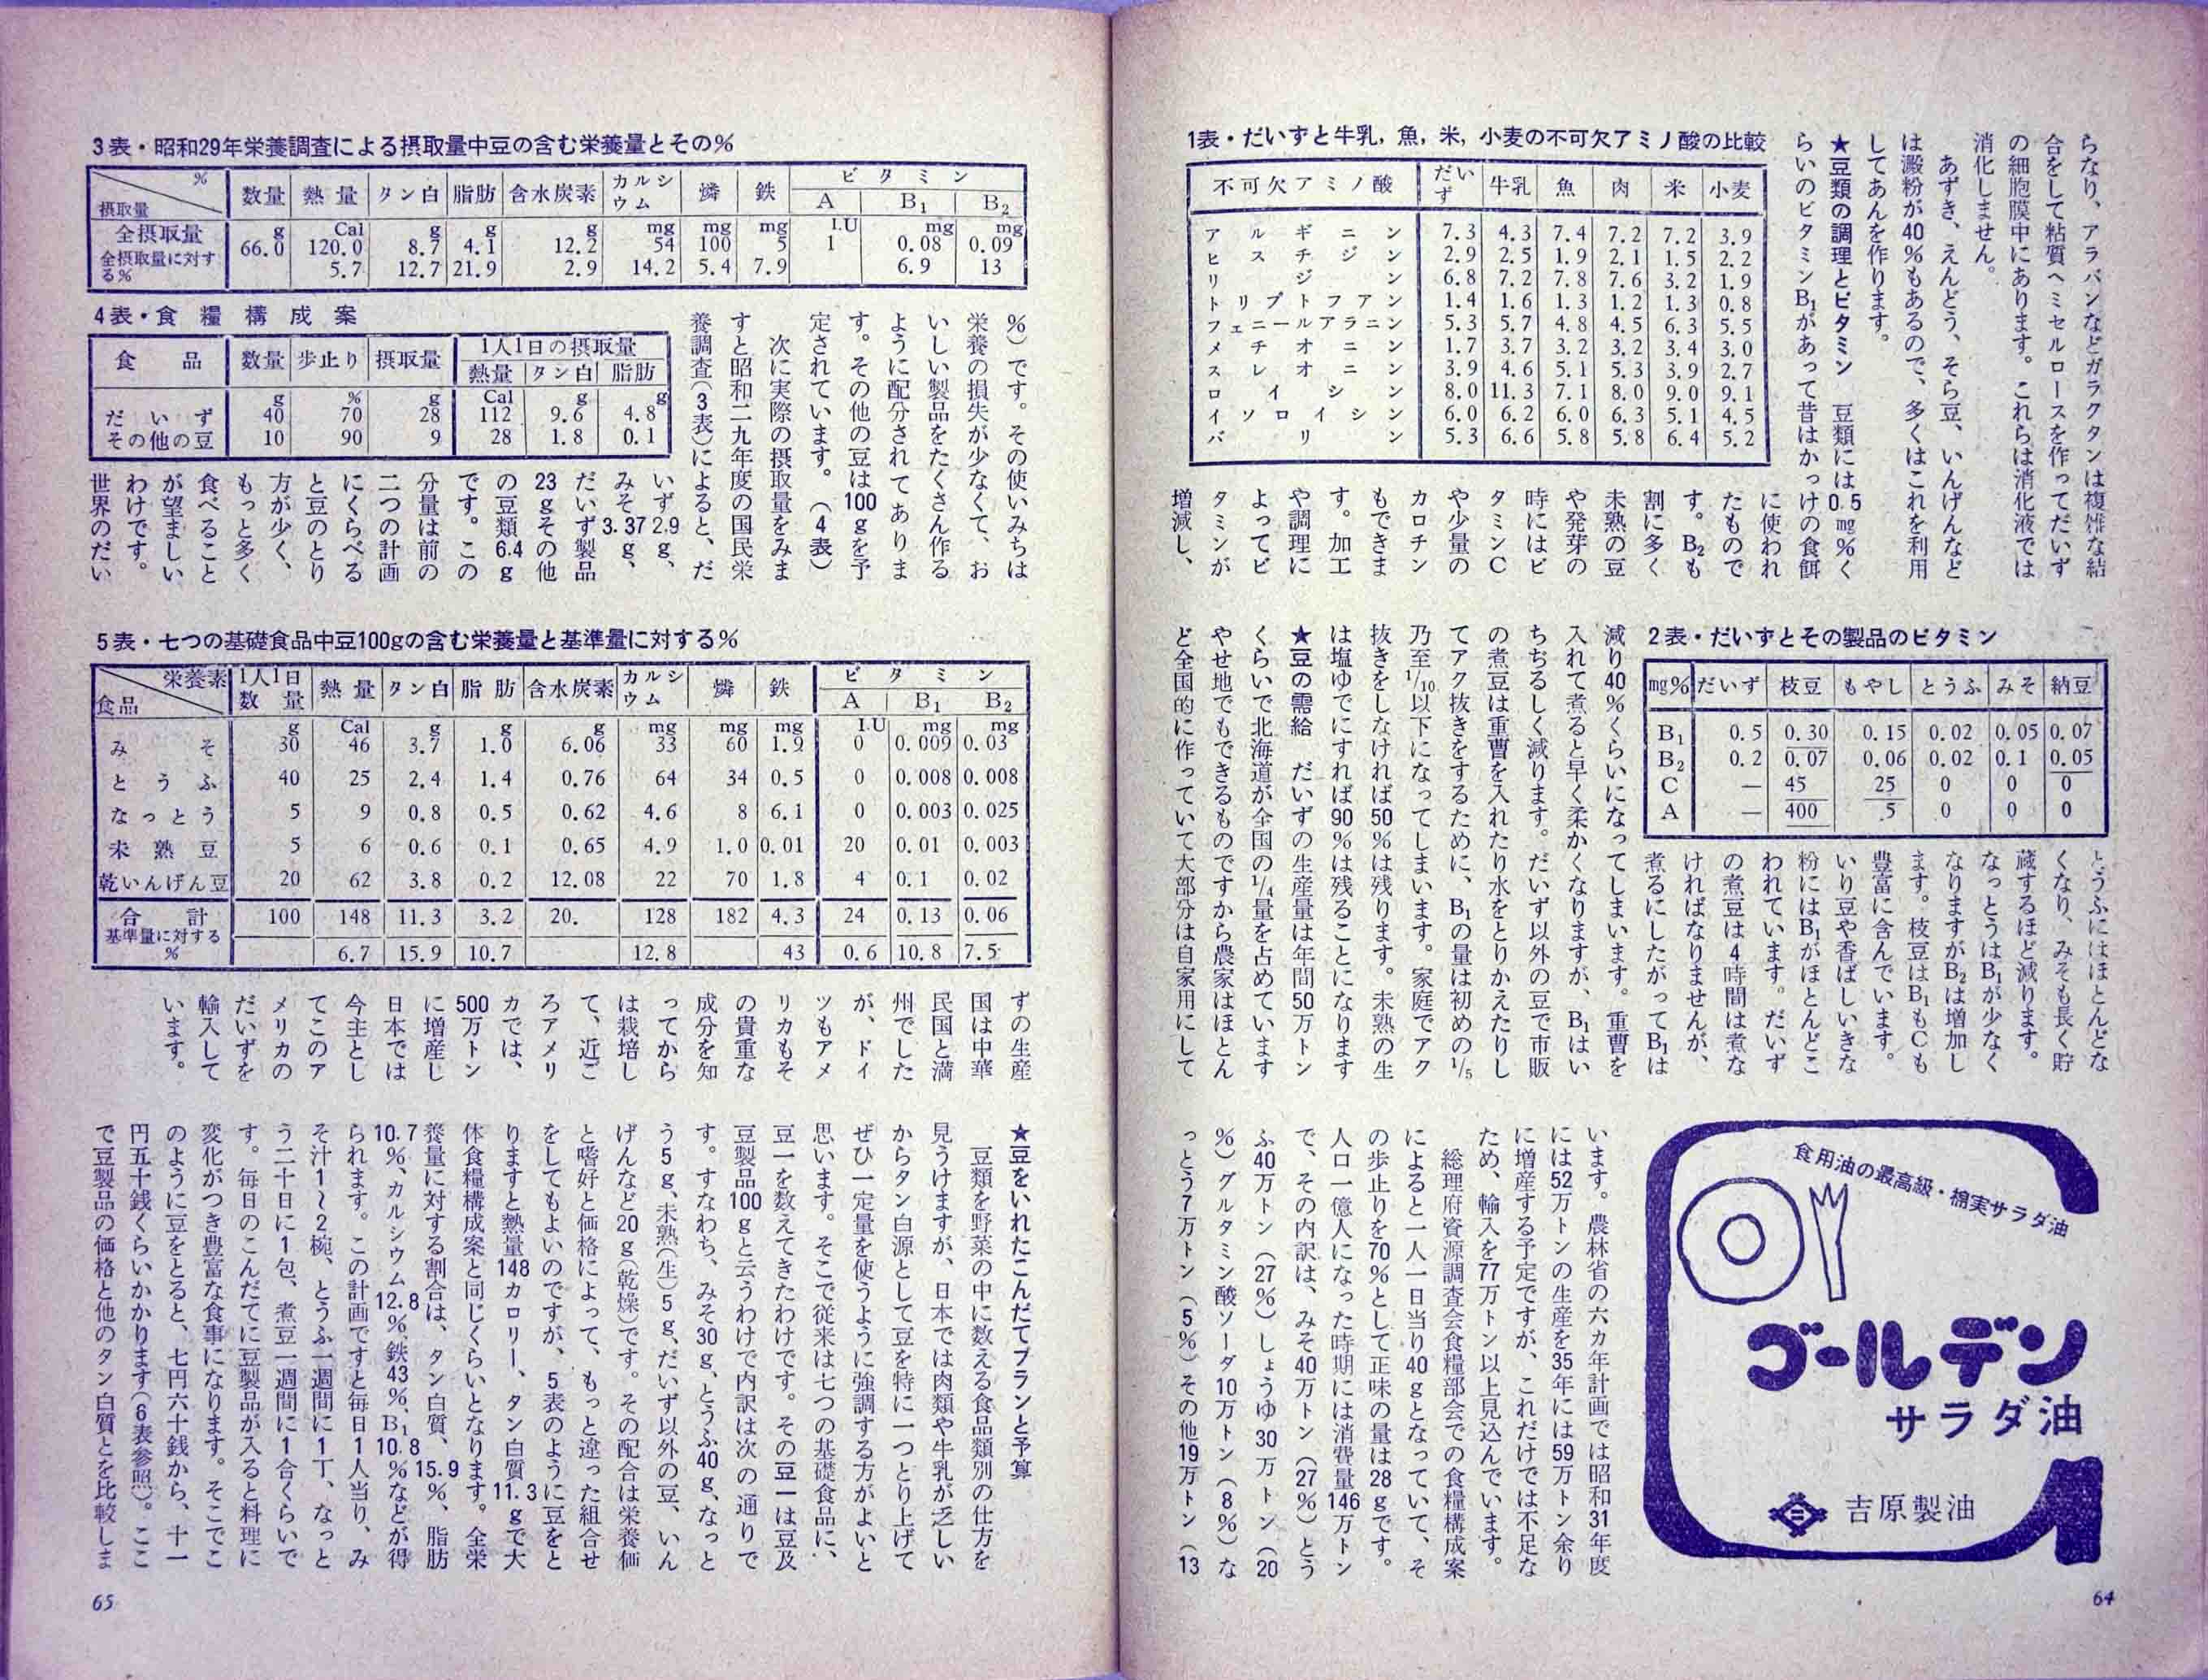 らなり、アラバンなどガラクタンは複雑な結
合をして粘質ヘミセルロースを作ってだいず
の細胞膜中にあります。これらは消化液では
消化しません。
あずき、えんどう、そら豆、いんげんなど
は澱粉が40%もあるので、多くはこれを利用
してあんを作ります。
★豆類の調理とビタミン 豆類には0.5mg%く
らいのビタミンB₁があって昔はかっけの食餌
に使われ
たもので
す。B₂も
割に多く
未熟の豆
や発芽の
時にはビ
タミンC
や少量の
カロチン
もできま
す。加工
や調理に
よってビ
タミンが
増減し、
1表・だいずと牛乳,魚,米,小麦の不可欠アミノ酸の比較
不可欠アミノ酸 だいず 牛乳 魚 肉 米 小麦
アルギニン 7.3 4.3 7.4 7.2 7.2 3.9
ヒスチジン 2.9 2.5 1.9 2.1 1.5 2.2
リジン 6.8 7.2 7.8 7.6 3.2 1.9
トリプトファン 1.4 1.6 1.3 1.2 1.3 0.8
フェニールアラニン 5.3 5.7 4.8 4.5 6.3 5.5
メチオニン 1.7 3.7 3.2 3.2 3.4 3.0
スレオニン 3.9 4.6 5.1 5.3 3.9 2.7
ロイシン 8.0 11.3 7.1 8.0 9.0 9.1
イソロイシン 6.0 6.2 6.0 6.3 5.1 4.5
バリン 5.3 6.6 5.8 5.8 6.4 5.2
2表・だいずとその製品のビタミン
mg% だいず 枝豆 もやし とうふ みそ 納豆
B₁ 0.5 0.30 0.15 0.02 0.05 0.07
B₂ 0.2 0.07 0.06 0.02 0.1 0.05
C — 45 25 0 0 0
A — 400 .5 0 0 0
とうふにはほとんどな
くなり、みそも長く貯
蔵するほど減ります。
なっとうはB₁が少なく
なりますがB₂は増加し
ます。枝豆はB₁もCも
豊富に含んでいます。
いり豆や香ばしいきな
粉にはB₁がほとんどこ
われています。だいず
の煮豆は4時間は煮な
ければなりませんが、
煮るにしたがってB₁は
減り40%くらいになってしまいます。重曹を
入れて煮ると早く柔かくなりますが、B₁はい
ちぢるしく減ります。だいず以外の豆で市販
の煮豆は重曹を入れたり水をとりかえたりし
てアク抜きをするために、B₁の量は初めの1/5
乃至1/10以下になってしまいます。家庭でアク
抜きをしなければ50%は残ります。未熟の生
は塩ゆでにすれば90%は残ることになります
★豆の需給 だいずの生産量は年間50万トン
くらいで北海道が全国の1/4量を占めています
やせ地でもできるものですから農家はほとん
ど全国的に作っていて大部分は自家用にして
います。農林省の六カ年計画では昭和31年度
には52万トンの生産を35年には59万トン余り
に増産する予定ですが、これだけでは不足な
ため、輸入を77万トン以上見込んでいます。
総理府資源調査会食糧部会での食糧構成案
によると一人一日当り40gとなっていて、そ
の歩止りを70%として正味の量は28gです。
人口一億人になった時期には消費量146万トン
で、その内訳は、みそ40万トン(27%)とう
ふ40万トン(27%)しょうゆ30万トン(20
%)グルタミン酸ソーダ10万トン(8%)な
っとう7万トン(5%)その他19万トン(13
食用油の最高級・棉実サラダ油
ゴールデン
サラダ油
吉原製油
64
3表・昭和29年栄養調査による摂取量中豆の含む栄養量とその%
% 摂取量 数量 熱量 タン白 脂肪 含水炭素 カルシウム 燐 鉄 ビタミン A B₁ B₂
g Cal g g g mg mg mg I.U mg mg
全摂取量 66.0 120.0 8.7 4.1 12.2 54 100 5 1 0.08 0.09
全摂取量に対する% 5.7 12.7 21.9 2.9 14.2 5.4 7.9 6.9 13
%)です。その使いみちは
栄養の損失が少なくて、お
いしい製品をたくさん作る
ように配分されてありま
す。その他の豆は100gを予
定されています。(4表)
次に実際の摂取量をみま
すと昭和二九年度の国民栄
養調査(3表)によると、だ
いず2.9g、
みそ3.37g、
だいず製品
23gその他
の豆類6.4g
です。この
分量は前の
二つの計画
にくらべる
と豆のとり
方が少く、
もっと多く
食べること
が望ましい
わけです。
世界のだい
4表・食糧構成案
食品 数量 歩止り 摂取量 1人1日の摂取量 熱量 タン白 脂肪
g % g Cal g g
だいず 40 70 28 112 9.6 4.8
その他の豆 10 90 9 28 1.8 0.1
5表・七つの基礎食品中豆100gの含む栄養量と基準量に対する%
栄養素 食品 1人1日数量 熱量 タン白 脂肪 含水炭素 カルシウム 燐 鉄 ビタミン A B₁ B₂
g Cal g g g mg mg mg I.U mg mg
みそ 30 46 3.7 1.0 6.06 33 60 1.9 0 0.009 0.03
とうふ 40 25 2.4 1.4 0.76 64 34 0.5 0 0.008 0.008
なっとう 5 9 0.8 0.5 0.62 4.6 8 6.1 0 0.003 0.025
未熟豆 5 6 0.6 0.1 0.65 4.9 1.0 0.01 20 0.01 0.003
乾いんげん豆 20 62 3.8 0.2 12.08 22 70 1.8 4 0.1 0.02
合計 100 148 11.3 3.2 20. 128 182 4.3 24 0.13 0.06
基準量に対する% 6.7 15.9 10.7 12.8 43 0.6 10.8 7.5
ずの生産
国は中華
民国と満
州でした
が、ドイ
ツもアメ
リカもそ
の貴重な
成分を知
ってから
は栽培し
て、近ご
ろアメリ
カでは、
500万トン
に増産し
日本では
今主とし
てこのア
メリカの
だいずを
輸入して
います。
★豆をいれたこんだてプランと予算
豆類を野菜の中に数える食品類別の仕方を
見うけますが、日本では肉類や牛乳が乏しい
からタン白源として豆を特に一つとり上げて
ぜひ一定量を使うように強調する方がよいと
思います。そこで従来は七つの基礎食品に、
豆一を数えてきたわけです。その豆一は豆及
豆製品100gと云うわけで内訳は次の通りで
す。すなわち、みそ30g、とうふ40g、なっと
う5g、未熟(生)5g、だいず以外の豆、いん
げんなど20g(乾燥)です。その配合は栄養価
と嗜好と価格によって、もっと違った組合せ
をしてもよいのですが、5表のように豆をと
りますと熱量148カロリー、タン白質11.3gで大
体食糧構成案と同じくらいとなります。全栄
養量に対する割合は、タン白質、15.9%、脂肪
10.7%、カルシウム12.8%、鉄43%、B₁10.8%などが得
られます。この計画ですと毎日1人当り、み
そ汁1〜2椀、とうふ一週間に1丁、なっと
う二十日に1包、煮豆一週間に1合くらいで
す。毎日のこんだてに豆製品が入ると料理に
変化がつき豊富な食事になります。そこでこ
のように豆をとると、七円六十銭から、十一
円五十銭くらいかかります(6表参照)。ここ
で豆製品の価格と他のタン白質とを比較しま
65